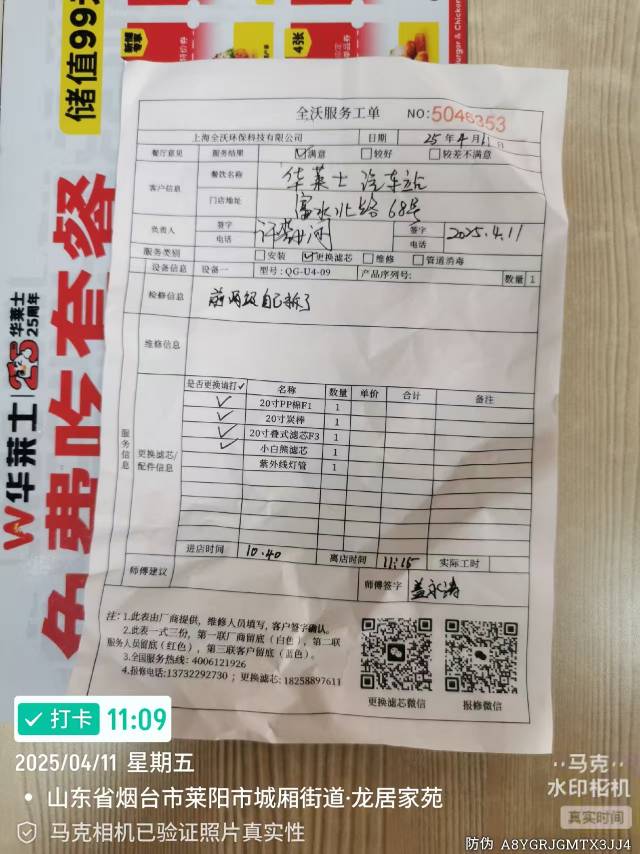 储值99元
新福专享
4张
Burger & Chicken
华莱士 25周年
W华莱士
免费吃套餐
全沃服务工单 NO:5046353
上海全沃环保科技有限公司 日期 25年4月11日
餐厅意见 服务结果 ☑满意 □较好 □较差不满意
客户信息 餐饮名称 华莱士 汽车站
门店地址 富水北路 68号
负责人 签字 电话 签字 电话 2025.4.11
服务类别 □安装 ☑更换滤芯 □维修 □管道消毒
设备信息 设备一 型号:QG-U4-09 产品序列号: 数量 1
检修信息 前两级自己拆了
维修信息
服务信息 更换滤芯/配件信息
是否更换请打✓ 名称 数量 单价 合计 备注
✓ 20寸PP棉F1 1
✓ 20寸炭棒 1
✓ 20寸叠式滤芯F3 1
✓ 小白熊滤芯 1
紫外线灯管 1
进店时间 10.40 离店时间 11:15 实际工时
师傅建议 师傅签字 盖永涛
注:1.此表由厂商提供,维修人员填写,客户签字确认。
2.此表一式三份,第一联厂商留底(白色),第二联
服务人员留底(红色),第三联客户留底(蓝色)。
3.全国服务热线:4006121926
4.报修电话:13732292730;更换滤芯:18258897611
更换滤芯微信 报修微信
✓打卡 11:09
2025/04/11 星期五
山东省烟台市莱阳市城厢街道·龙居家苑
马克相机已验证照片真实性
马克
水印相机
真实时间
防伪 A8YGRJGMTX3JJ4